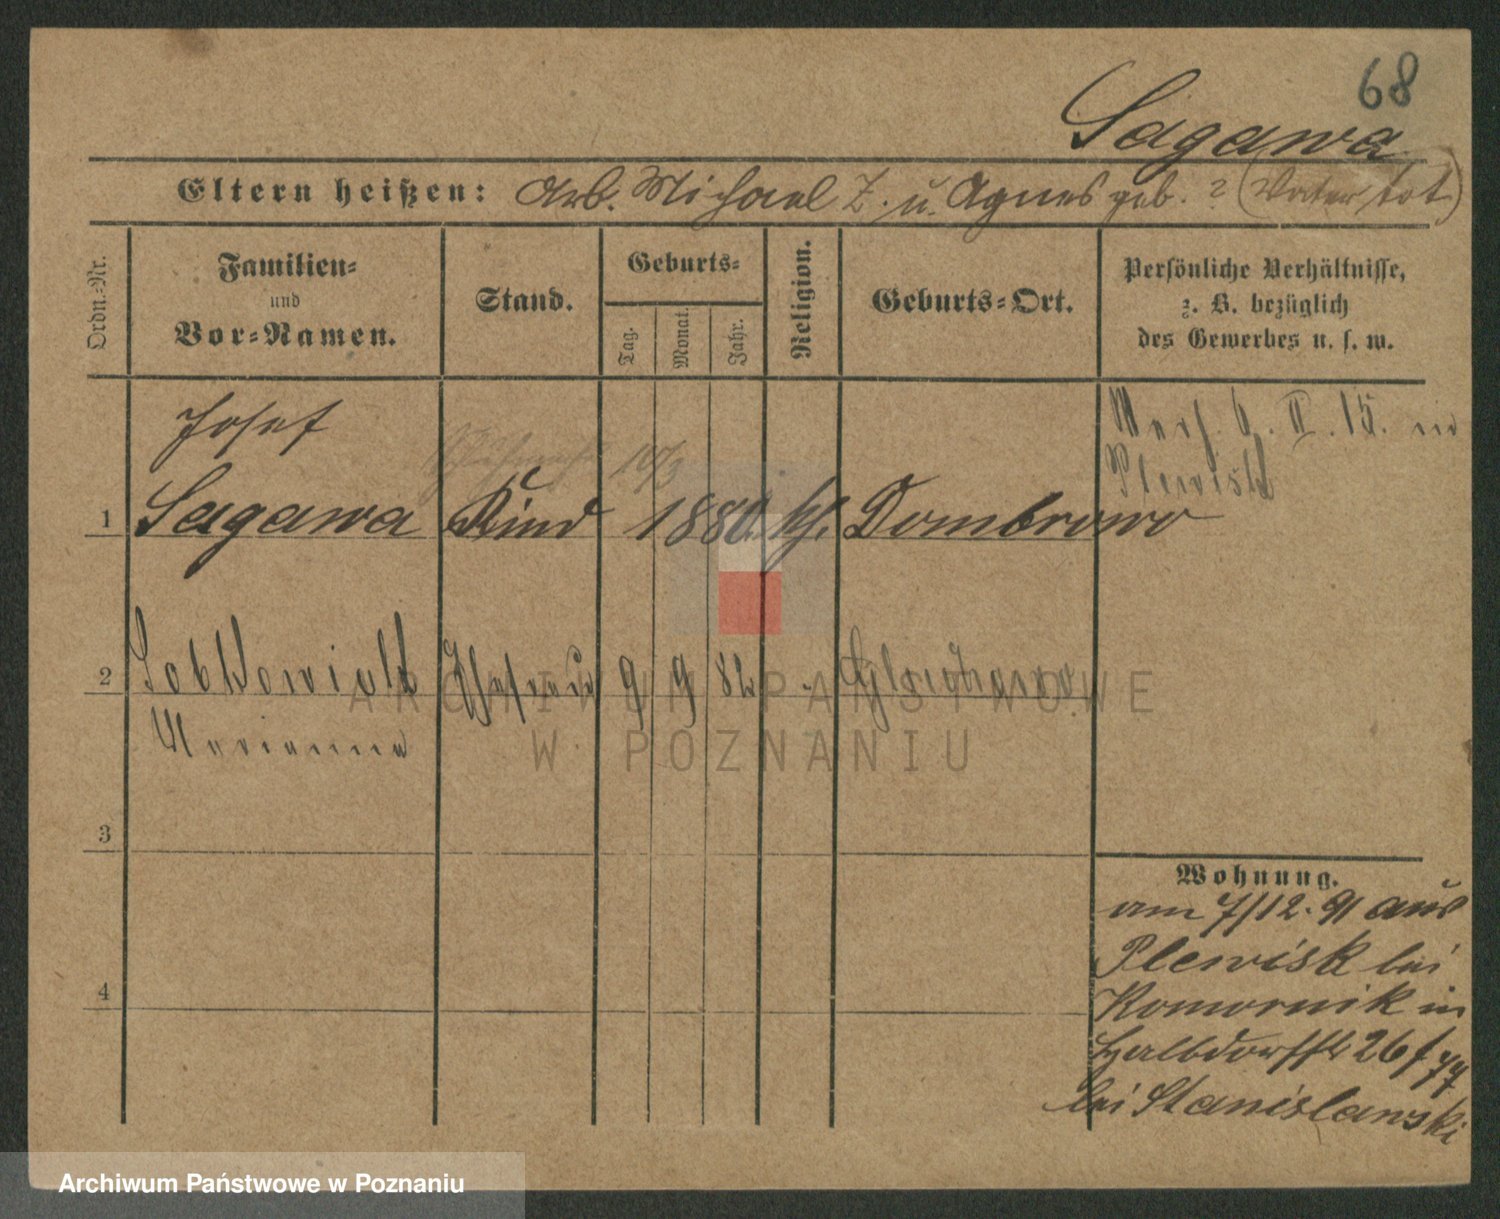 68
Sagawa
Eltern heißen: Arb. Michael Z. u. Agnes geb. ? (Vater tot)
Ordn.-Nr.
Familien-
und
Vor-Namen.
Stand.
Geburts-
Tag.
Monat.
Jahr.
Religion.
Geburts-Ort.
Persönliche Verhältnisse,
z. B. bezüglich
des Gewerbes u. s. w.
Josef
19/3
1 Sagawa Kind 1880. kth. Dombrowo
6. II. 15. in
Plewisk
2 Ehefrau 9 9 82
Marianna
3
4
Wohnung.
am 7/12. 91 aus
Plewisk bei
Komornik in
Halbdorfstr 26
bei Stanislawski
ARCHIWUM PAŃSTWOWE
W POZNANIU
Archiwum Państwowe w Poznaniu